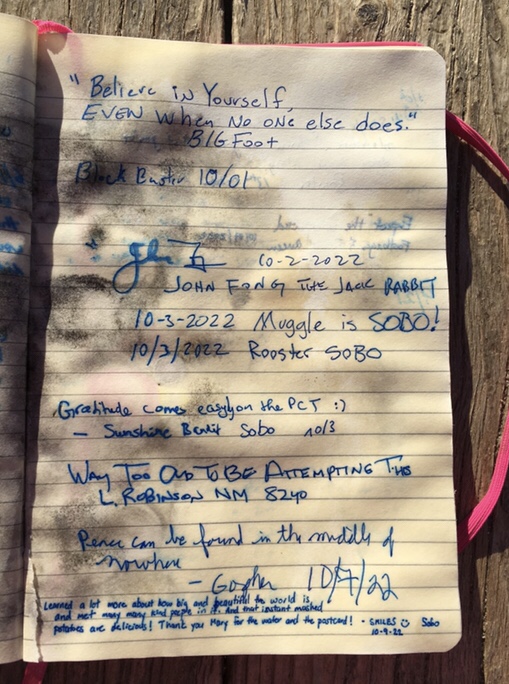 "Believe in Yourself,
EVEN When NO ONE else does."
BIGFOOT
10/01
10-2-2022
JOHN FONG THE JACK RABBIT
10-3-2022 Muggle is SOBO!
10/3/2022 Rooster SOBO
Gratitude comes easily on the PCT :)
- Sunshine Sobo 10/3
WAY TOO OLD TO BE ATTEMPTING THIS
L. ROBINSON NM
Peace can be found in the middle of
nowhere
- Gopher 10/7/22
Learned a lot more about how big and beautiful the world is,
and met many many kind people in it. And that instant mashed
potatoes are delicious! Thank you Mary for the water and the postcard! - SMILES ☺ Sobo
10-9-22